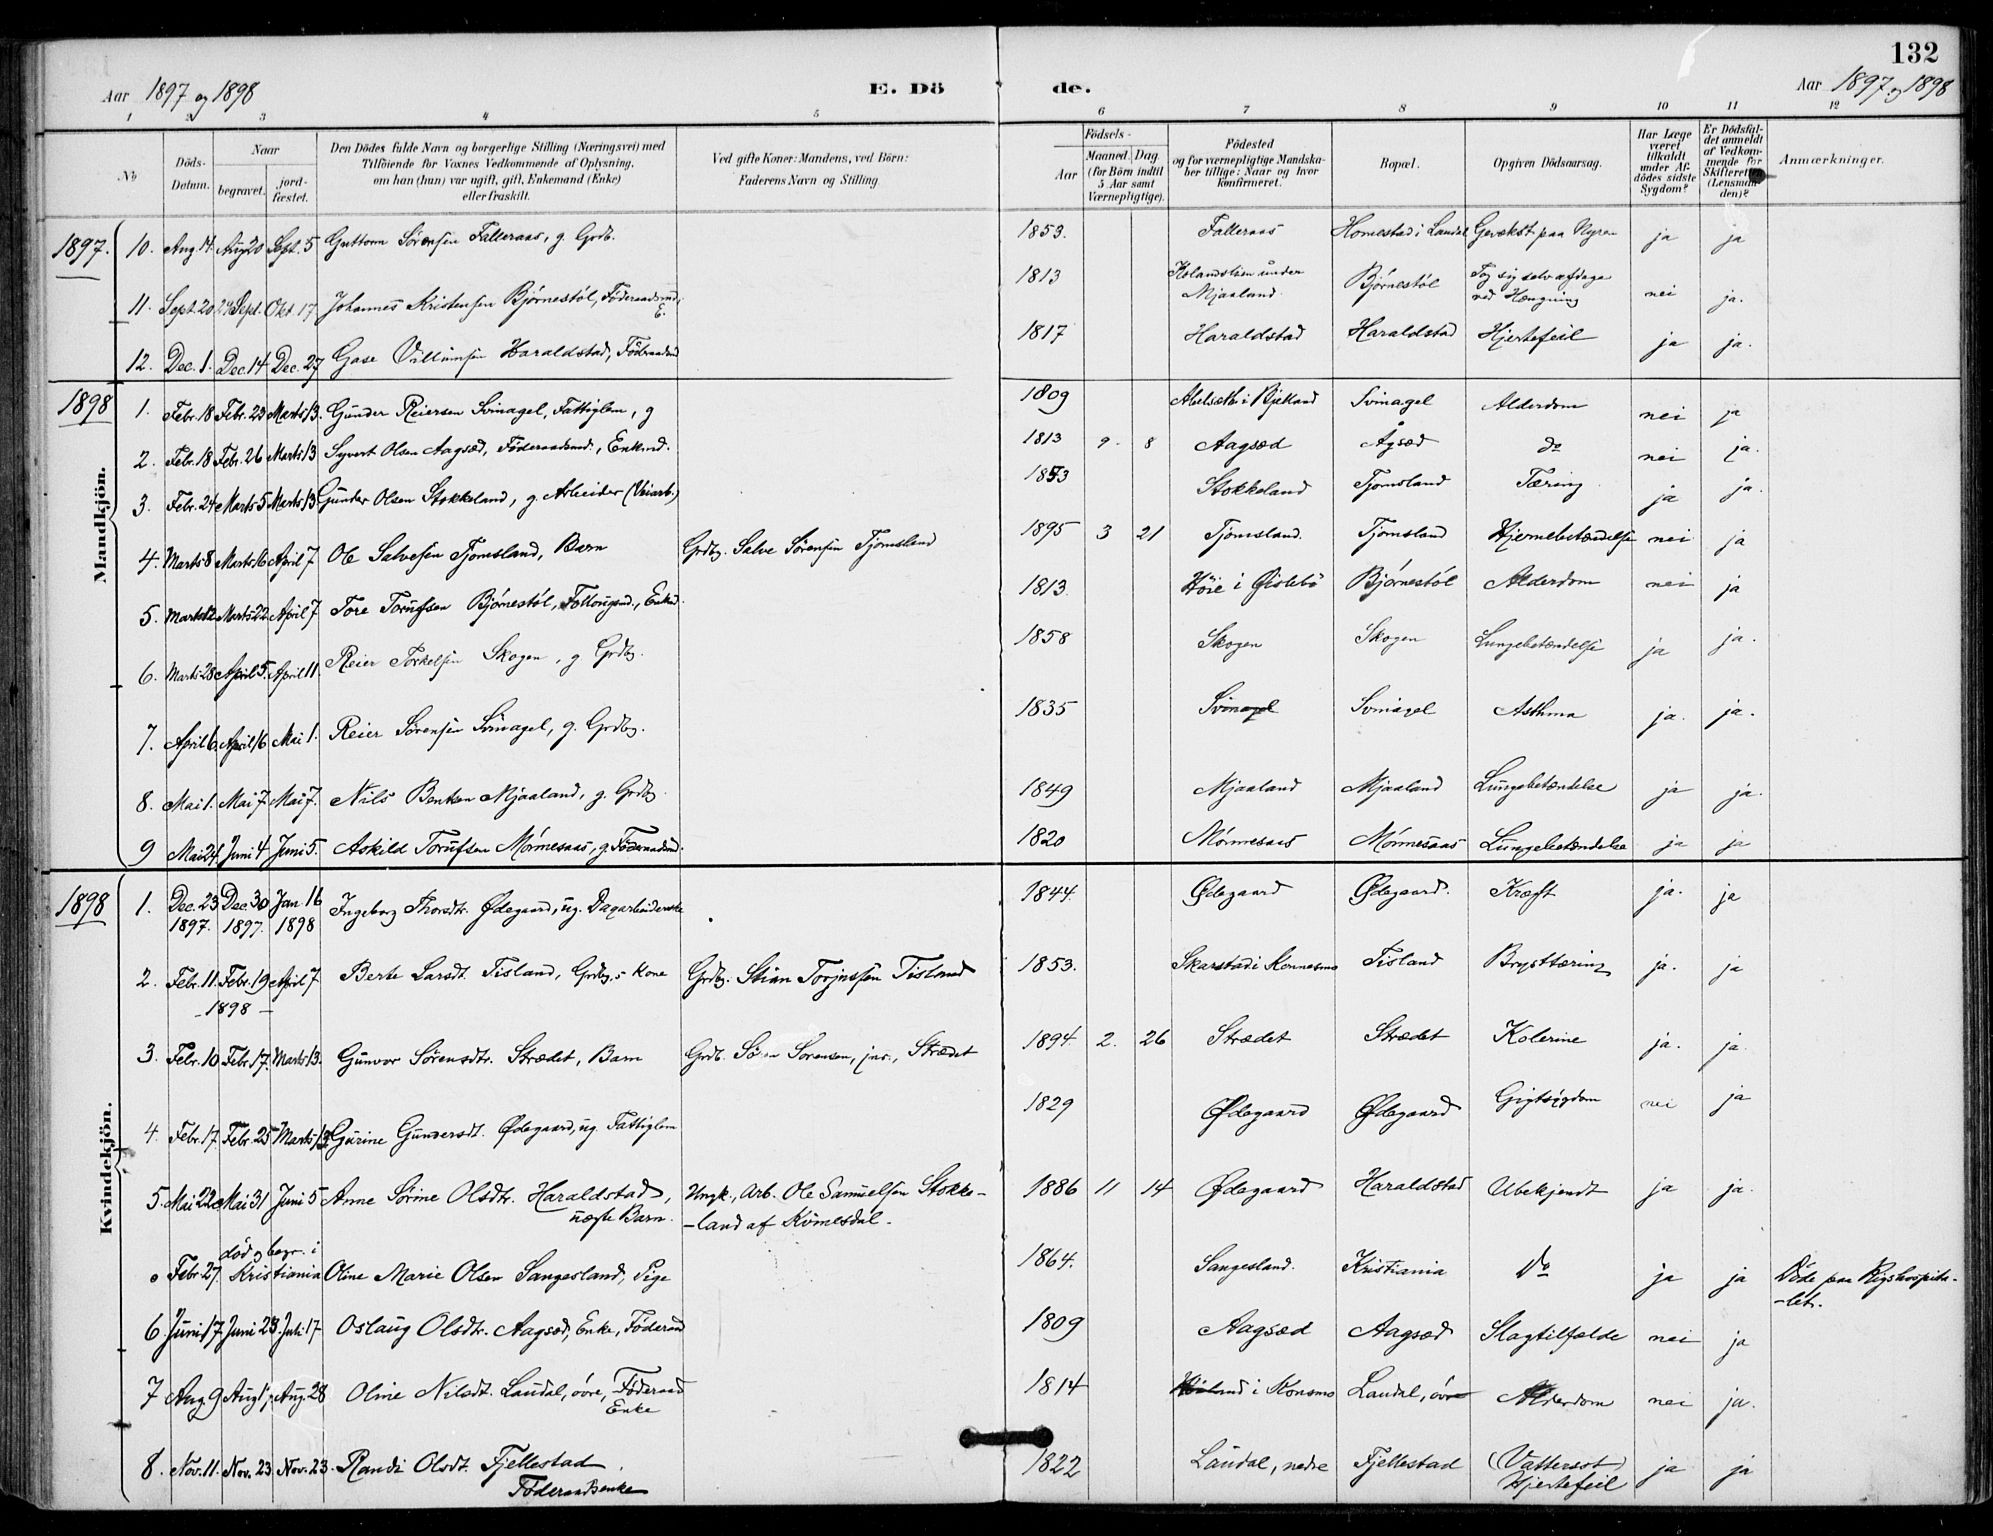 132
Aar 1897 og 1898
E. Dö
de.
Aar 1897 og 1898
1 2 3 4 5 6 7 8 9 10 11 12
No
Döds-Datum.
Naar
begravet.
jord-fæstet.
Den Dödes fulde Navn og borgerlige Stilling (Næringsvei) med
Tilföiende for Voxnes Vedkommende af Oplysning,
om han (hun) var ugift, gift, Enkemand (Enke)
eller fraskilt.
Ved gifte Koner: Mandens, ved Börn:
Faderens Navn og Stilling.
Födsels-
Aar
Maaned. Dag.
(for Börn indtil
5 Aar samt
Værnepligtige).
Födested
og for værnepligtige Mandska-
ber tillige: Naar og hvor
konfirmeret.
Bopæl.
Opgiven Dödsaarsag.
Har Læge
været
tilkaldt
under Af-
dödes sidste
Sygdom?
Er Dödsfal-
det anmeldt
af Vedkom-
mende for
Skifteretten
(Lensman-
den)?
Anmærkninger.
1897. 10. Aug. 14. Aug 20 Sept. 5 Guttorm Sörensen Falleraas, g. Grdb. 1853. Falleraas Homestad i Laudal Gevækst paa Nyren ja ja
11. Sept. 20 24 Sept. Okt. 17 Johannes Kristensen Bjørnestøl, Föderaadsmd, E. 1813 under Mjaaland Bjørnestøl Tog sig selv afdage ved Hængning nei ja.
12. Dec. 1. Dec. 14 Dec. 27 Gase Villumsen Haraldstad, Föderaadsmd 1817 Haraldstad Haraldstad Hjertefeil ja ja.
Mandkjön.
1898 1. Febr. 18 Febr. 23 Marts 13. Gunder Reiersen Svinagel, Fattiglem, g 1809 i Bjelland Svinagel Alderdom nei ja
2. Febr. 18 Febr. 26 Marts 13 Syvert Olsen Aagsæd, Föderaadsmd., Enkmd. 1813 9. 8 Aagsæd Ågsæd do nei ja.
3. Febr. 24 Marts 5 Marts 13 Gunder Olsen Stokkeland, g. Arbeider (Veiarb.) 1853 Stokkeland Tjomsland Tæring ja ja.
4. Marts 8 Marts 16 April 7 Ole Salvesen Tjomsland, Barn Grdbg. Salve Sörensen Tjomsland 1895 3 21 Tjomsland. Tjomsland Hjernebetændelse nei ja
5. Marts 12 Marts 22 April 7. Tore Torufsen Bjørnestøl, Enkmd. 1813. Høie i Øislebö Bjørnestøl Alderdom nei ja
6. Marts 28 April 5. April 11. Reier Torkelsen Skogen, g Grdbg. 1858 Skogen Skogen Lungebetændelse ja ja.
7. April 6 April 16 Mai 1. Reier Sörensen Svinagel, g. Grdbg. 1835 Svinagel Svinagel Asthma ja. ja.
8. Mai 1. Mai 7. Mai 7. Nils Bentsen Mjaaland, g. Grdbg. 1849 Mjaaland Mjaaland Lungebetændelse ja ja.
9 Mai 24 Juni 4 Juni 5. Askild Torufsen Mørmesaas, g. Föderaadsmd. 1820 Mørmesaas Mørmesaas Lungebetændelse ja ja
Kvindekjön.
1898 1. Dec. 23 1897. Dec. 30 1897. Jan 16 1898 Ingeborg Thorsdtr. Ødegaard, ug. Dagarbeiderske 1844. Ødegaard Ødegaard. Kræft ja. ja
2. Febr. 11 Febr. 19 April 7 - 1898 - Berte Larsdt. Tisland, Grdbg.s Kone Grdbg. Stian Torjussen Tisland 1853. Skarstad i Konnesmo Tisland Brysttæring ja. ja
3. Febr. 10 Febr. 17. Marts 13. Gunvor Sörensdtr. Strædet, Barn Grdb. Sören Sörensen, jnr., Strædet 1894. 2. 26 Strædet Strædet Kolerine ja. ja.
4. Febr. 17. Febr. 25 Marts 13 Gurine Gundersdt. Ødegaard, ug. Fattiglem 1829 Ødegaard Ødegaard Gigtsygdom nei ja
5. Mai 22 Mai 31 Juni 5 Anne Sörine Olsdtr. Haraldstad, uægte Barn. Ungk., Arb. Ole Samuelsen Stokke-
-land af Kömesdal. 1886 11 14 Ødegaard Haraldstad Ubekjendt ja ja.
o Febr. 27. död og begr. i Kristiania Oline Marie Olsen Sangesland, Pige 1864. Sangesland. Kristiania Do ja ja Döde paa Rigshospita-
-let.
6. Juni 17. Juni 23. Juli 17. Oslaug Olsdtr. Aagsæd, Enke, Föderaad 1809 Aagsæd Aagsæd Slagtilfælde nei ja
7 Aug. 9 Aug. 17 Aug. 28 Oline Nilsdt. Laudal, övre, Föderaad Enke 1814 i Konsmo Laudal, övre Alderdom nei ja.
8. Nov. 11. Nov. 23. Nov. 23. Randi Olsdt. Fjellestad Föderaadsenke 1822 Laudal, nedre Fjellestad (Vattersot) Hjertefeil ja ja